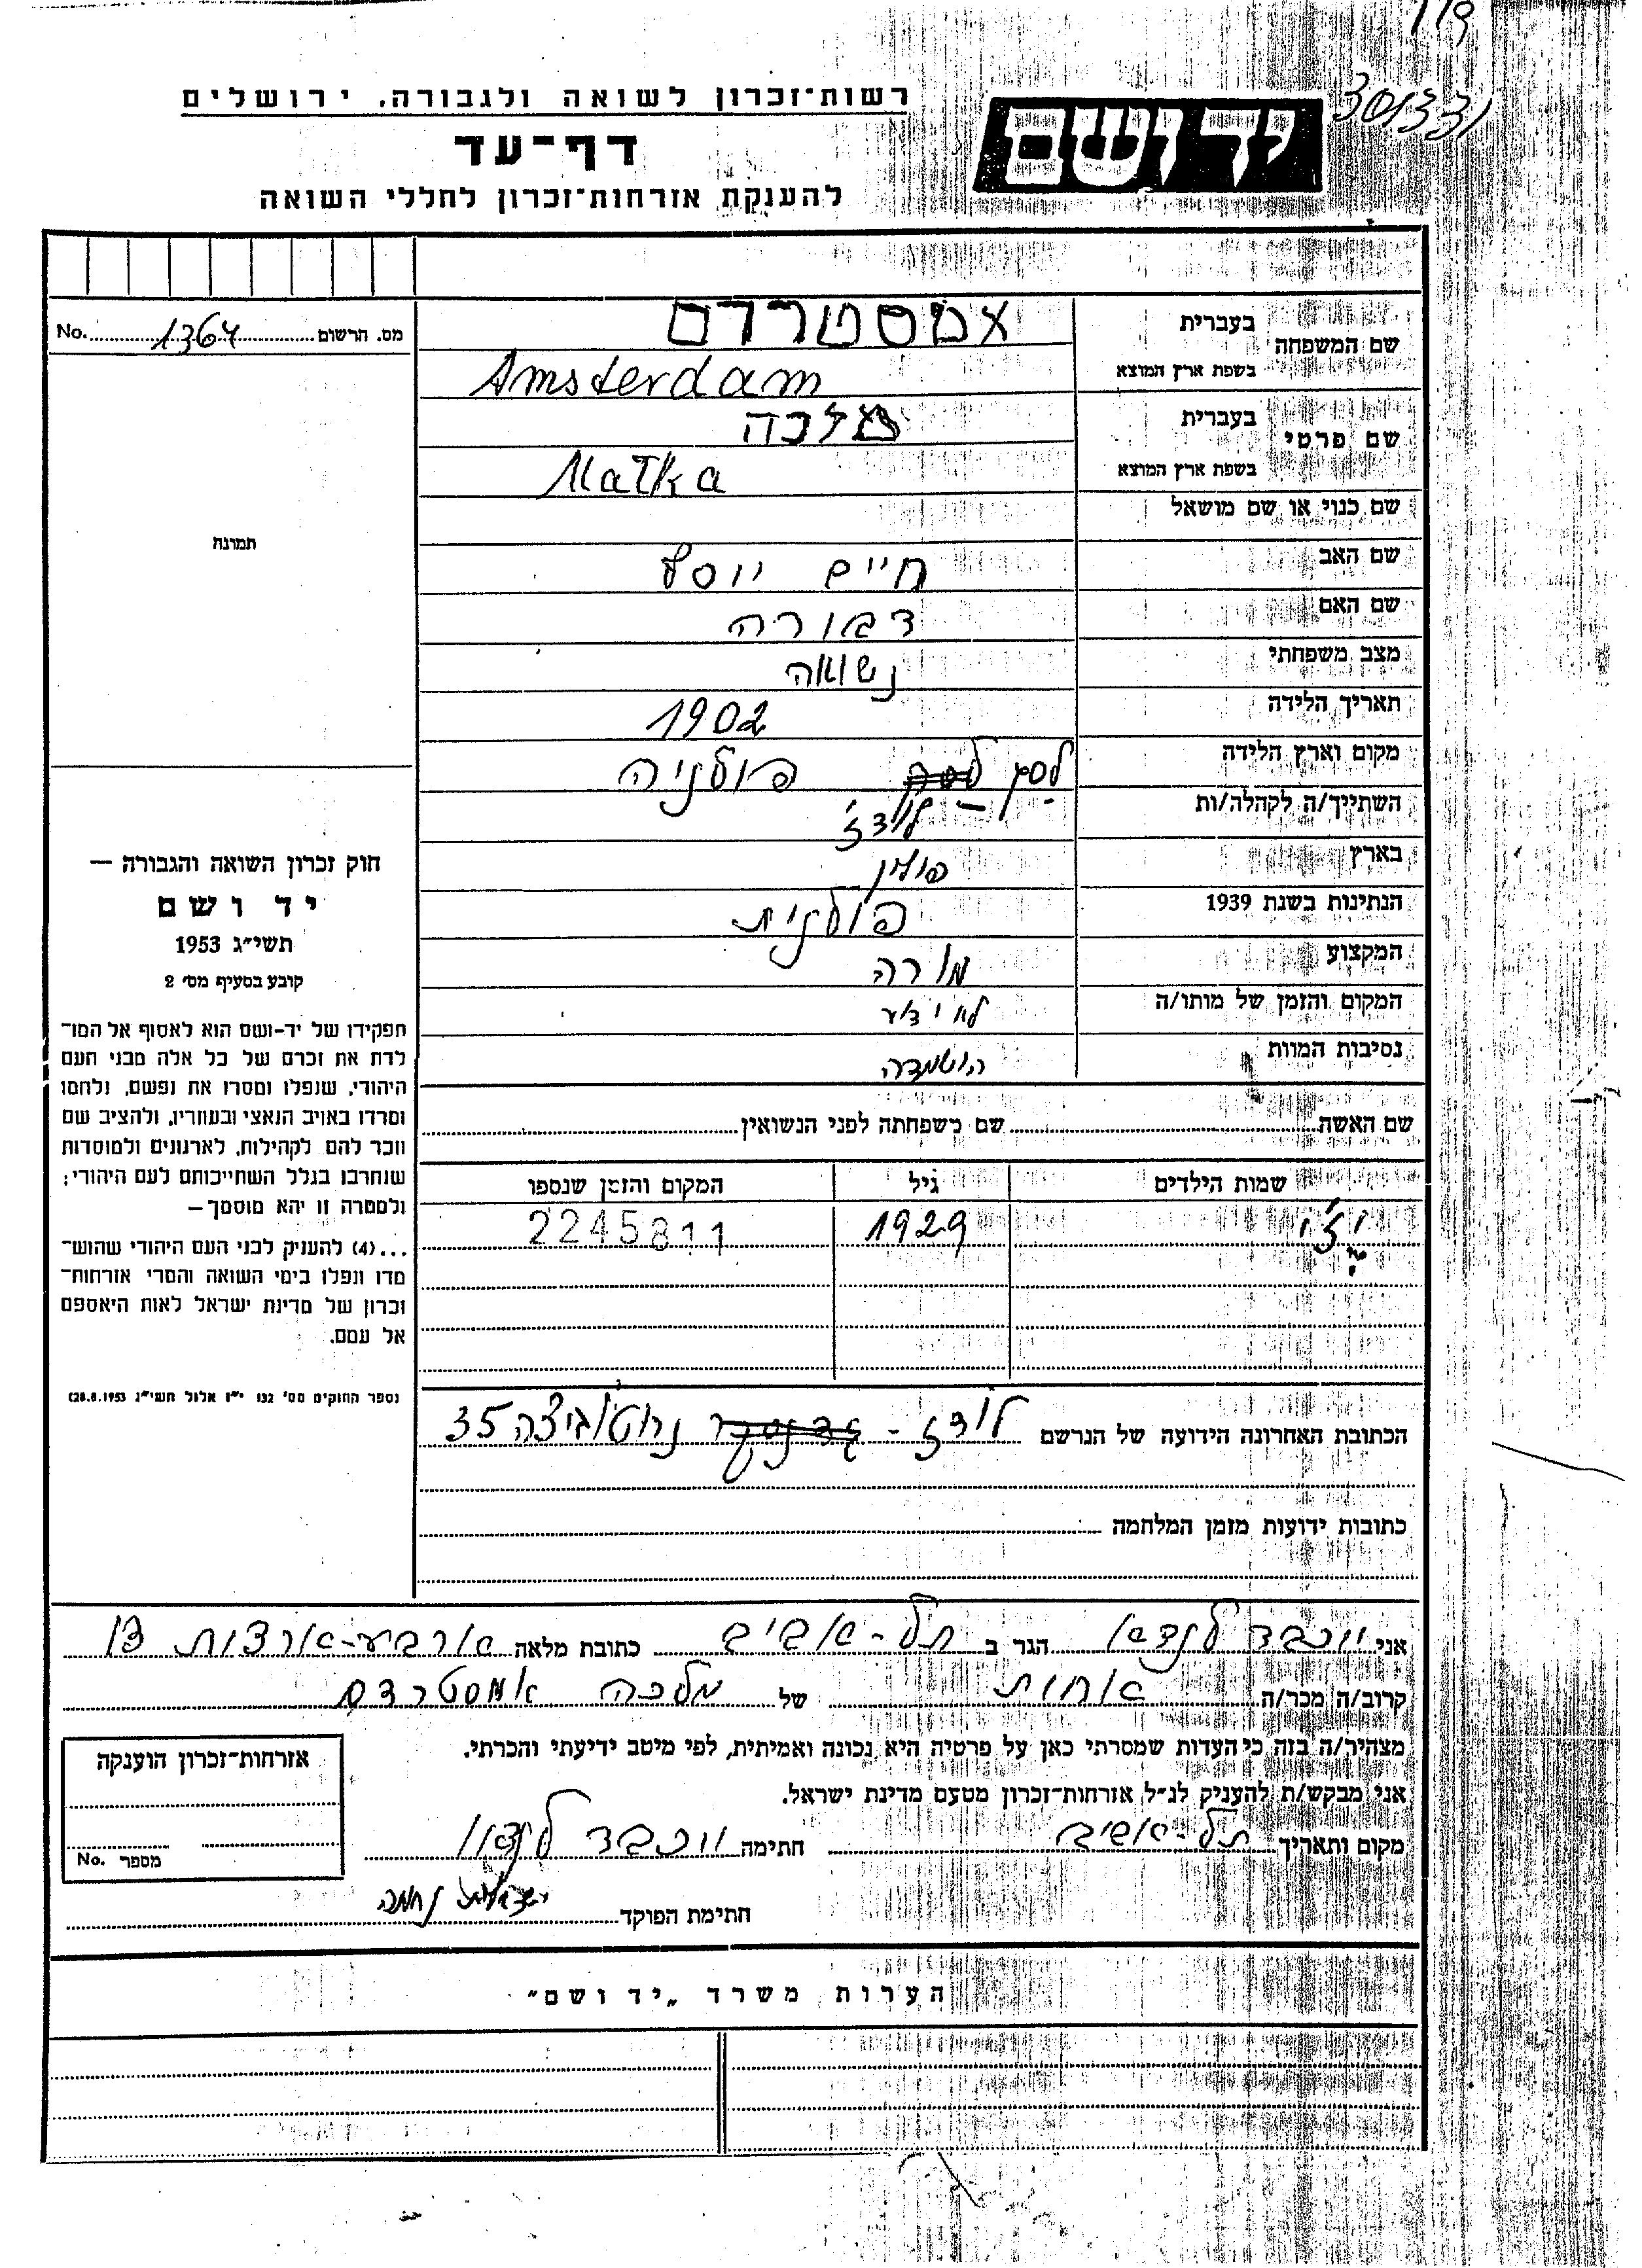 301331
רשות־זכרון לשואה ולגבורה, ירושלים
יד ושם
דף־עד
להענקת אזרחות־זכרון לחללי השואה
מס. הרשום 1364 No.
תמונה
שם המשפחה
בעברית אמסטרדם
בשפת ארץ המוצא Amsterdam
שם פרטי
בעברית מלכה
בשפת ארץ המוצא Małka
שם כנוי או שם מושאל
שם האב חיים יוסף
שם האם דבורה
מצב משפחתי נשואה
תאריך הלידה 1902
מקום וארץ הלידה לסק פולניה
השתייך/ה לקהלה/ות לודז'
בארץ פולין
הנתינות בשנת 1939 פולנית
המקצוע מורה
המקום והזמן של מותו/ה לא ידוע
נסיבות המוות הושמדה
שם האשה שם משפחתה לפני הנשואין
שמות הילדים גיל המקום והזמן שנספו
1929 2245811
הכתובת האחרונה הידועה של הנרשם לודז - נרוטוביצה 35
כתובות ידועות מזמן המלחמה
חוק זכרון השואה והגבורה —
יד ושם
תשי״ג 1953
קובע בסעיף מס׳ 2
תפקידו של יד-ושם הוא לאסוף אל המו־
לדת את זכרם של כל אלה מבני העם
היהודי, שנפלו ומסרו את נפשם, נלחמו
ומרדו באויב הנאצי ובעוזריו, ולהציב שם
וזכר להם לקהילות, לארגונים ולמוסדות
שנחרבו בגלל השתייכותם לעם היהודי;
ולמטרה זו יהא מוסמך —
...(4) להעניק לבני העם היהודי שהוש־
מדו ונפלו בימי השואה והמרי אזרחות־
זכרון של מדינת ישראל לאות היאספם
אל עמם.
(ספר החוקים מס׳ 132 י״ז אלול תשי״ג 28.8.1953)
אני יוכבד לנדאו הגר ב תל-אביב כתובת מלאה ארבע-ארצות 13
קרוב/ה מכר/ה אחות של מלכה אמסטרדם
מצהיר/ה בזה כי העדות שמסרתי כאן על פרטיה היא נכונה ואמיתית, לפי מיטב ידיעתי והכרתי.
אני מבקש/ת להעניק לנ״ל אזרחות־זכרון מטעם מדינת ישראל.
מקום ותאריך תל-אביב חתימה יוכבד לנדאו
חתימת הפוקד
אזרחות־זכרון הוענקה
מספר No.
הערות משרד „יד ושם״